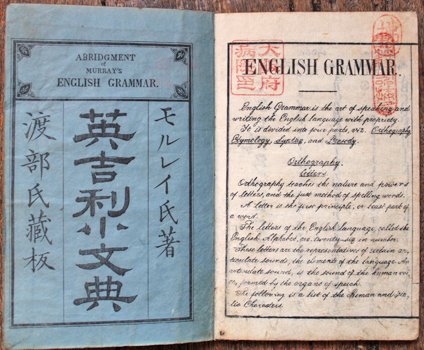 ABRIDGMENT
OF
MURRAY'S
ENGLISH GRAMMAR.
モルレイ氏著
英吉利小文典
渡部氏藏板
ENGLISH GRAMMAR.
English Grammar is the art of speaking and
writing the English language with propriety.
It is divided into four parts, viz. Orthography
Etymology, Syntax, and Prosody.
Orthography.
Letters
Orthography teaches the nature and powers
of letters, and the just method of spelling words.
A letter is the first principle, or least part of
a word.
The letters of the English Language, called the
English Alphabet, are twenty-six in number.
These letters are the representatives of certain ar-
ticulate sounds, the elements of the language. An
articulate sound, is the sound of the human voi-
ce, formed by the organs of speech.
The following is a list of the Roman and Ita-
lic Characters.